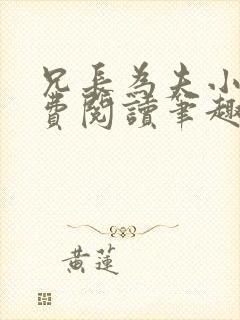 兄長為夫小
費閱讀筆趣
黃蓮